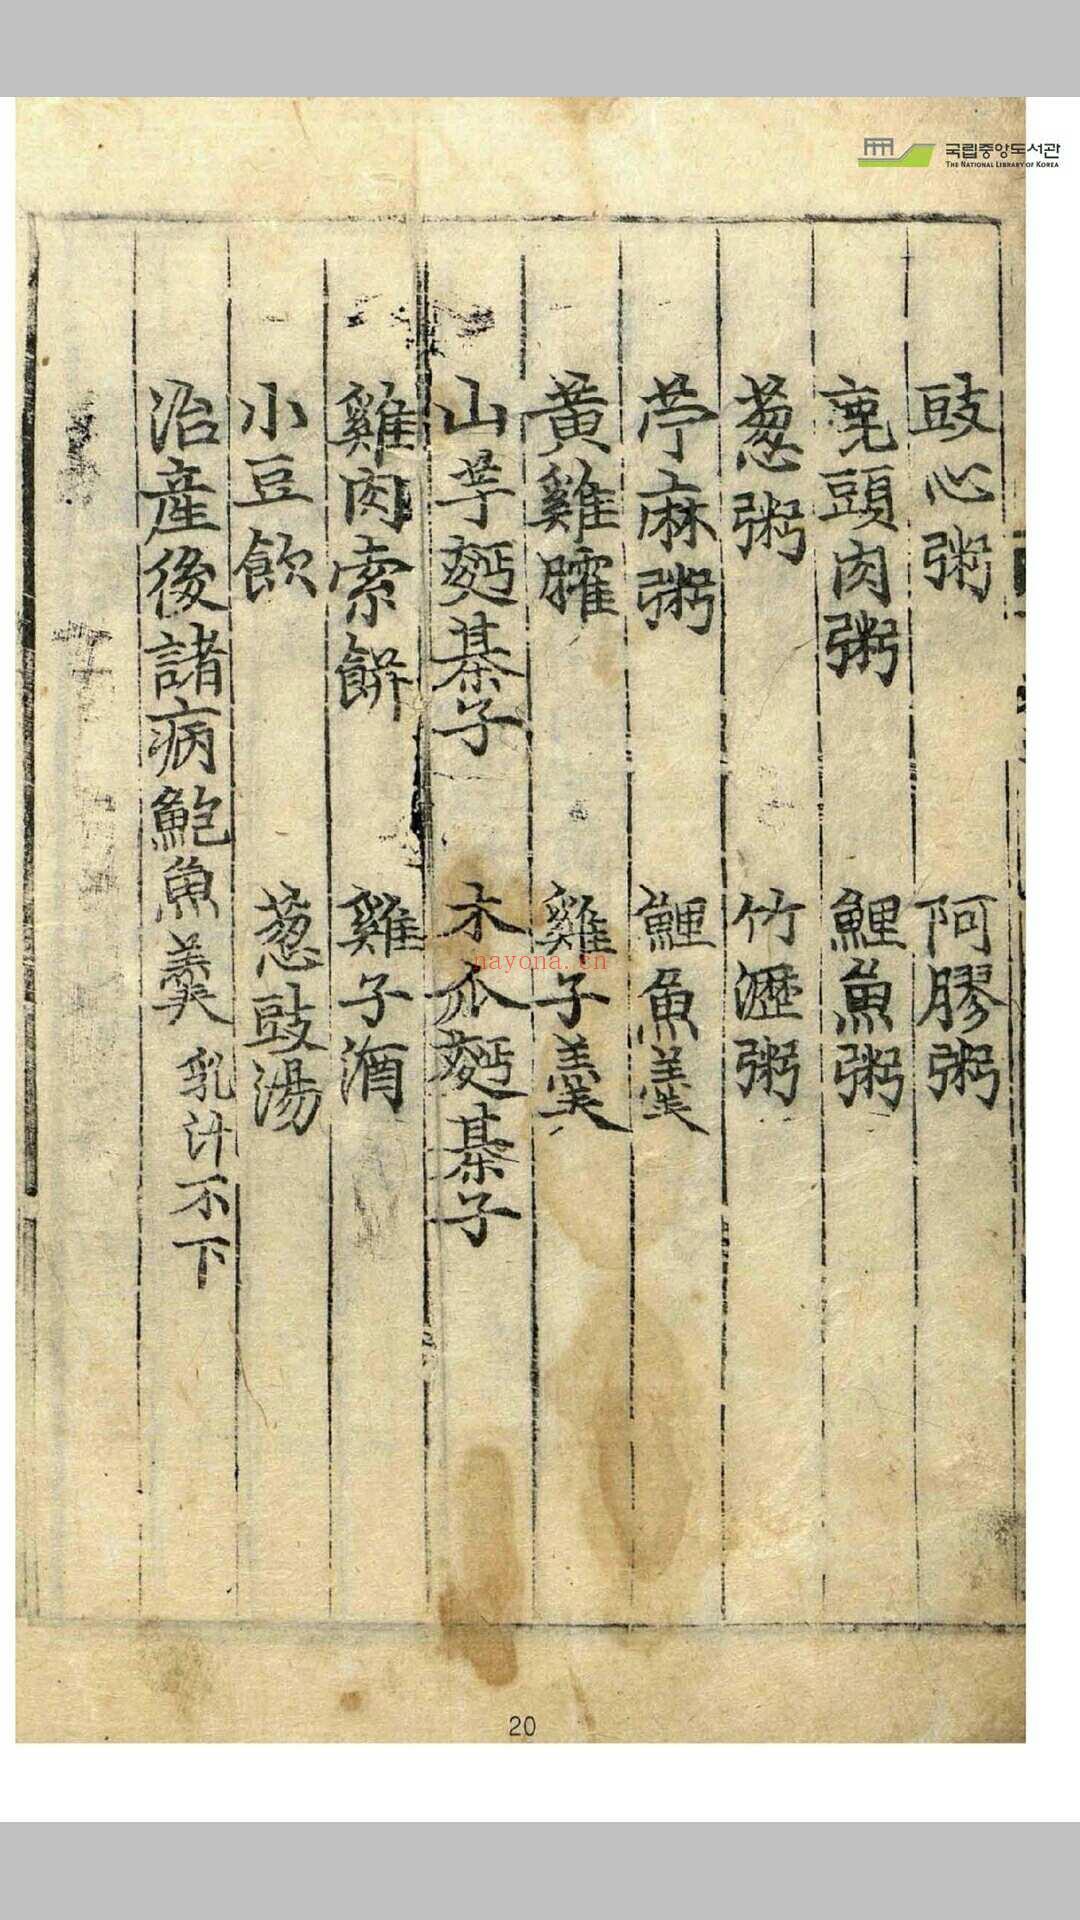 국립중앙도서관
THE NATIONAL LIBRARY OF KOREA
豉心粥 阿膠粥
鹿頭肉粥 鯉魚粥
葱粥 竹瀝粥
苧麻粥 鯉魚羹
黃雞臛 雞子羹
山芋麪棊子 木瓜麪棊子
雞肉索餅 雞子酒
小豆飲 葱豉湯
治產後諸病鮑魚羹 乳汁不下
nayona.cn
20